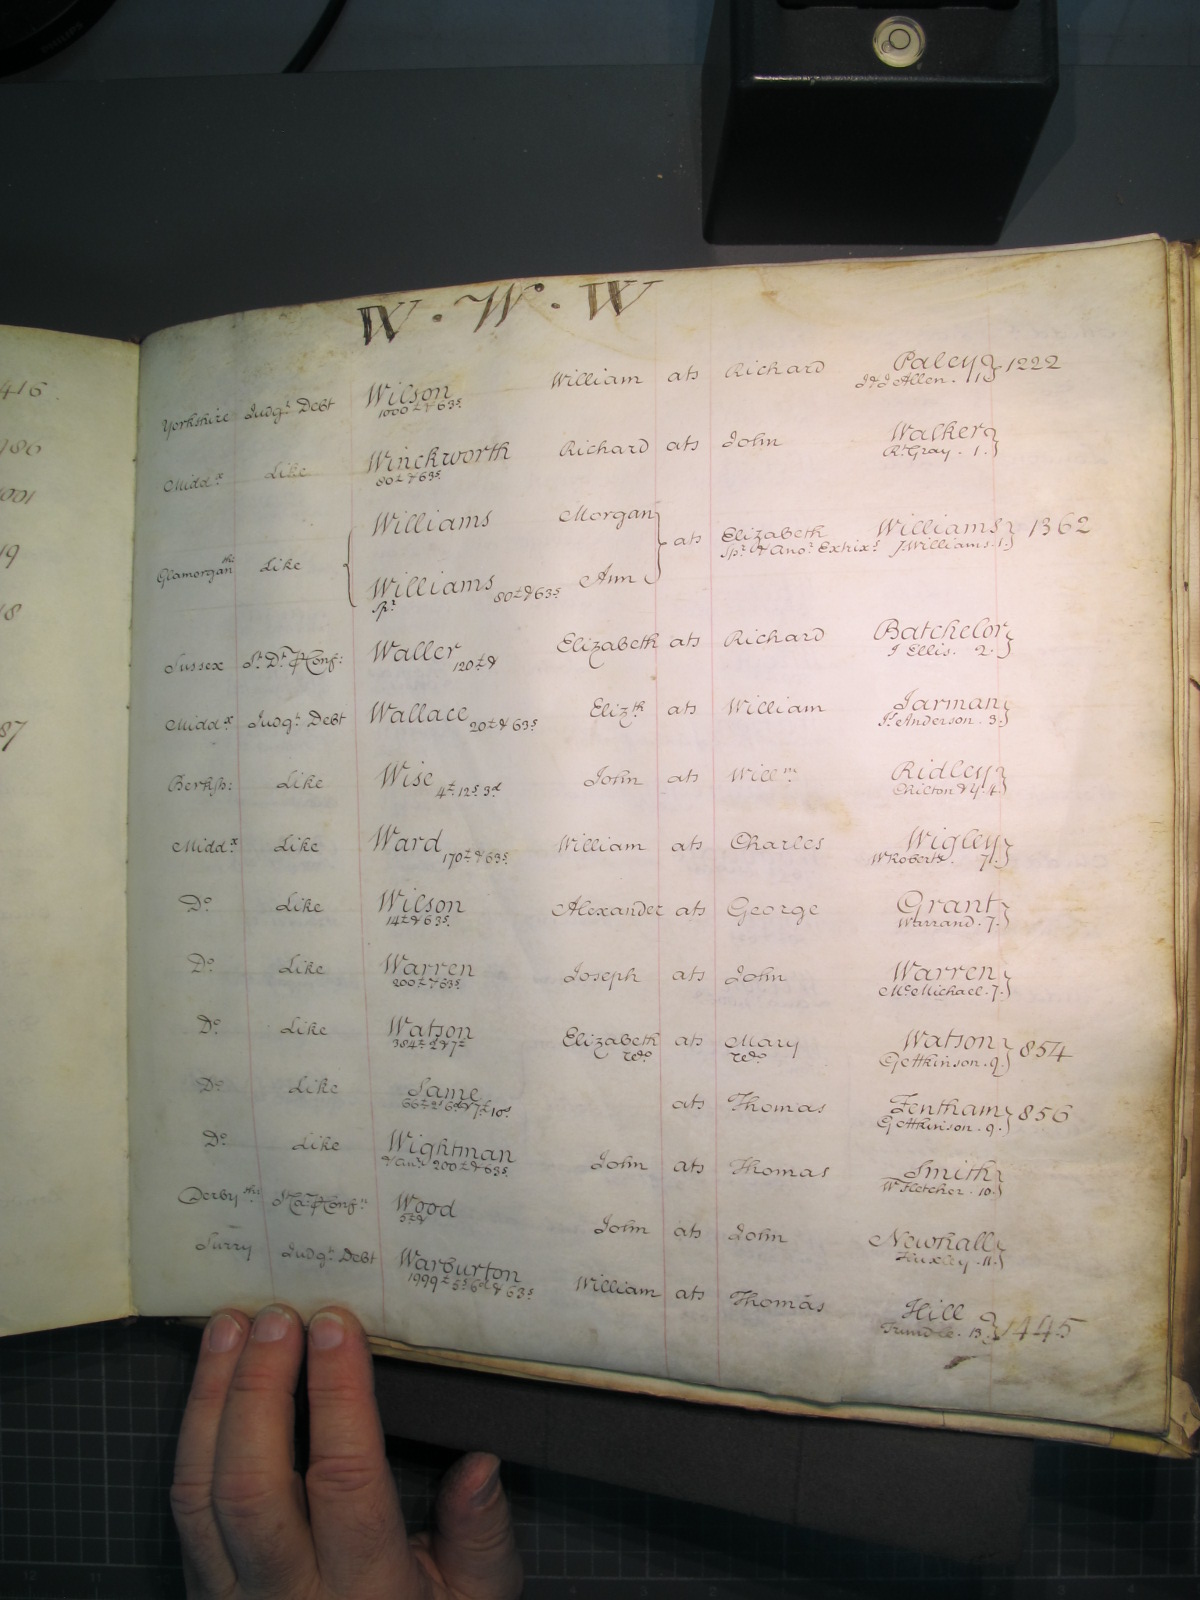 W · W · W
416
Yorkshire Judgt Debt Wilson William ats Richard Paley 1222
1000£ & 63s J & J Allen . 1
186
Middx Like Winckworth Richard ats John Walker
80£ & 63s Rd Gray . 1.
001
Williams Morgan
Glamorganshe Like ats Elizabeth Williams 1362
Spr & Anor Exhixs J Williams . 1.
19
Williams 80£ & 63s Ann
Spr
18
Sussex Waller 120£ & Elizabeth ats Richard Batchelor
J Ellis . 2.
Middx Judgt Debt Wallace 20£ & 63s Elizth ats William Jarman
Js Anderson . 3.
87
Berksh: Like Wise 4£ . 12s 3d John ats Willm Ridley
Chilton & Y. 4.
Middx Like Ward 170£ & 63s William ats Charles Wigley
W Roberts . 7.
Do Like Wilson Alexander ats George Grant
14£ & 63s Warrand . 7.
Do Like Warren Joseph ats John Warren
200£ & 63s McMichael . 7.
Do Like Watson Elizabeth ats Mary Watson 854
384£ & 7£ wdo wdo G Atkinson . 9.
Do Like Same ats Thomas Fentham 856
66£ 2s 6d & 7£ 10s G Atkinson . 9.
Do Like Wightman John ats Thomas Smith
& Anr 200£ & 63s W Fletcher . 10.
Derbyshe Wood John ats John Newhall
5£ & Huxley . 11.
Surry Judgt Debt Warburton William ats Thomas Hill 1445
1999£ 5s 6d & 63s Trundle . 13.